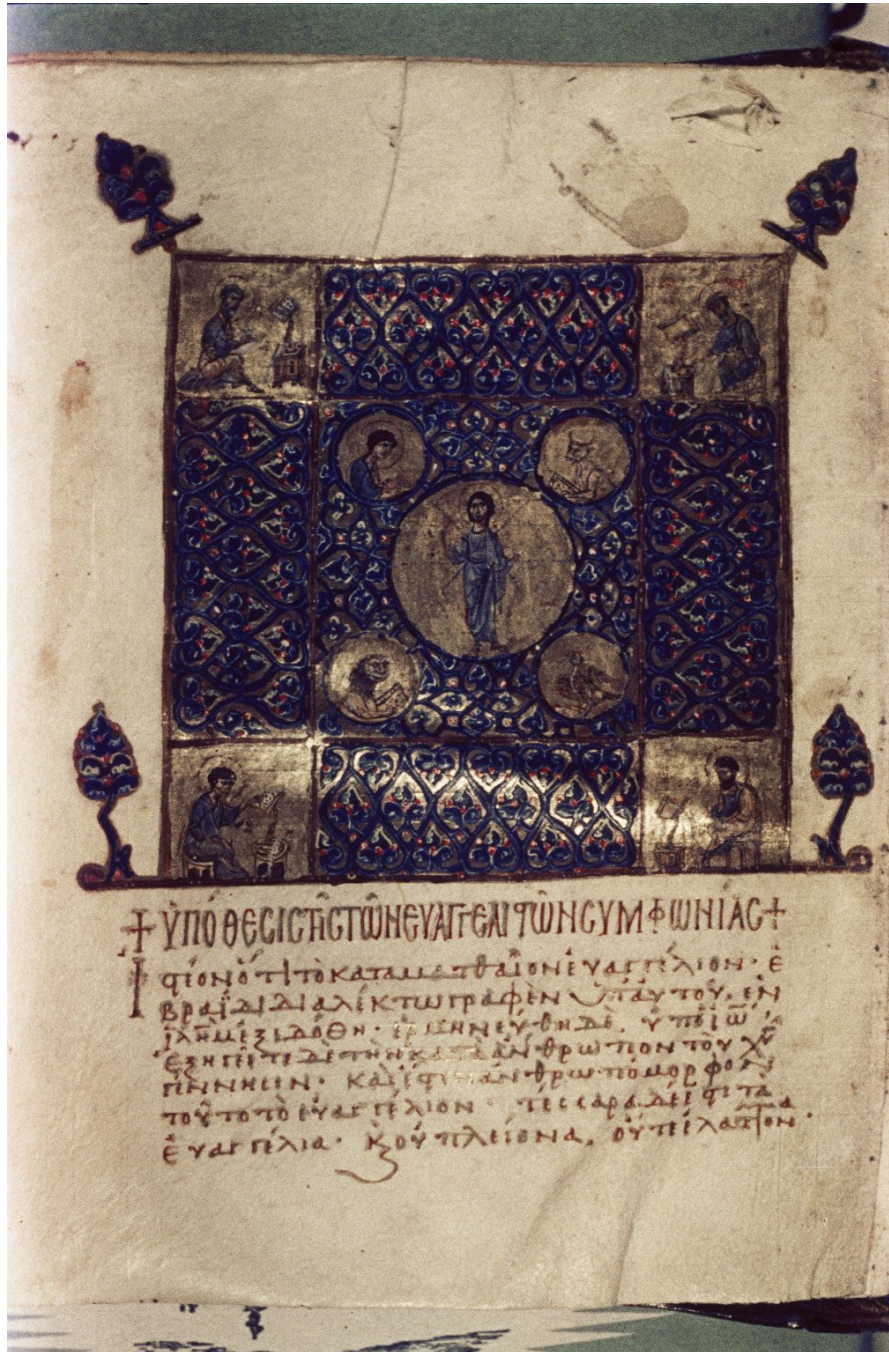 + ὙΠΌΘΕCΙC ΤΗ͂C ΤΩ͂Ν ΕΥΑΓΓΕΛΙϚΩ͂Ν CΥΜΦΩΝΊΑC +
Ἰϛέον ὅτι τὸ κατὰ ματθαῖον ἐυαγγέλιον· ἑ
βραΐδι διαλέκτω γραφὲν ὑπ' αὐτοῦ, ἐν
ἱλῆμ ἐξεδόθη· ἑρμηνεύθη δὲ, ὑπὸ ἰω·
ἐξηγεῖτε δὲ τὴν κατὰ ἄνθρωπον τοῦ χυ
γέννησιν· καὶ ἔϛιν ἀνθρωπόμορφον
τοῦτο τὸ ἐυαγγέλιον· τέσσαρα δέ εἰσι τὰ
ἐυαγγέλια· κ οὐ πλείονα, οὔτε ἐλάττονα·